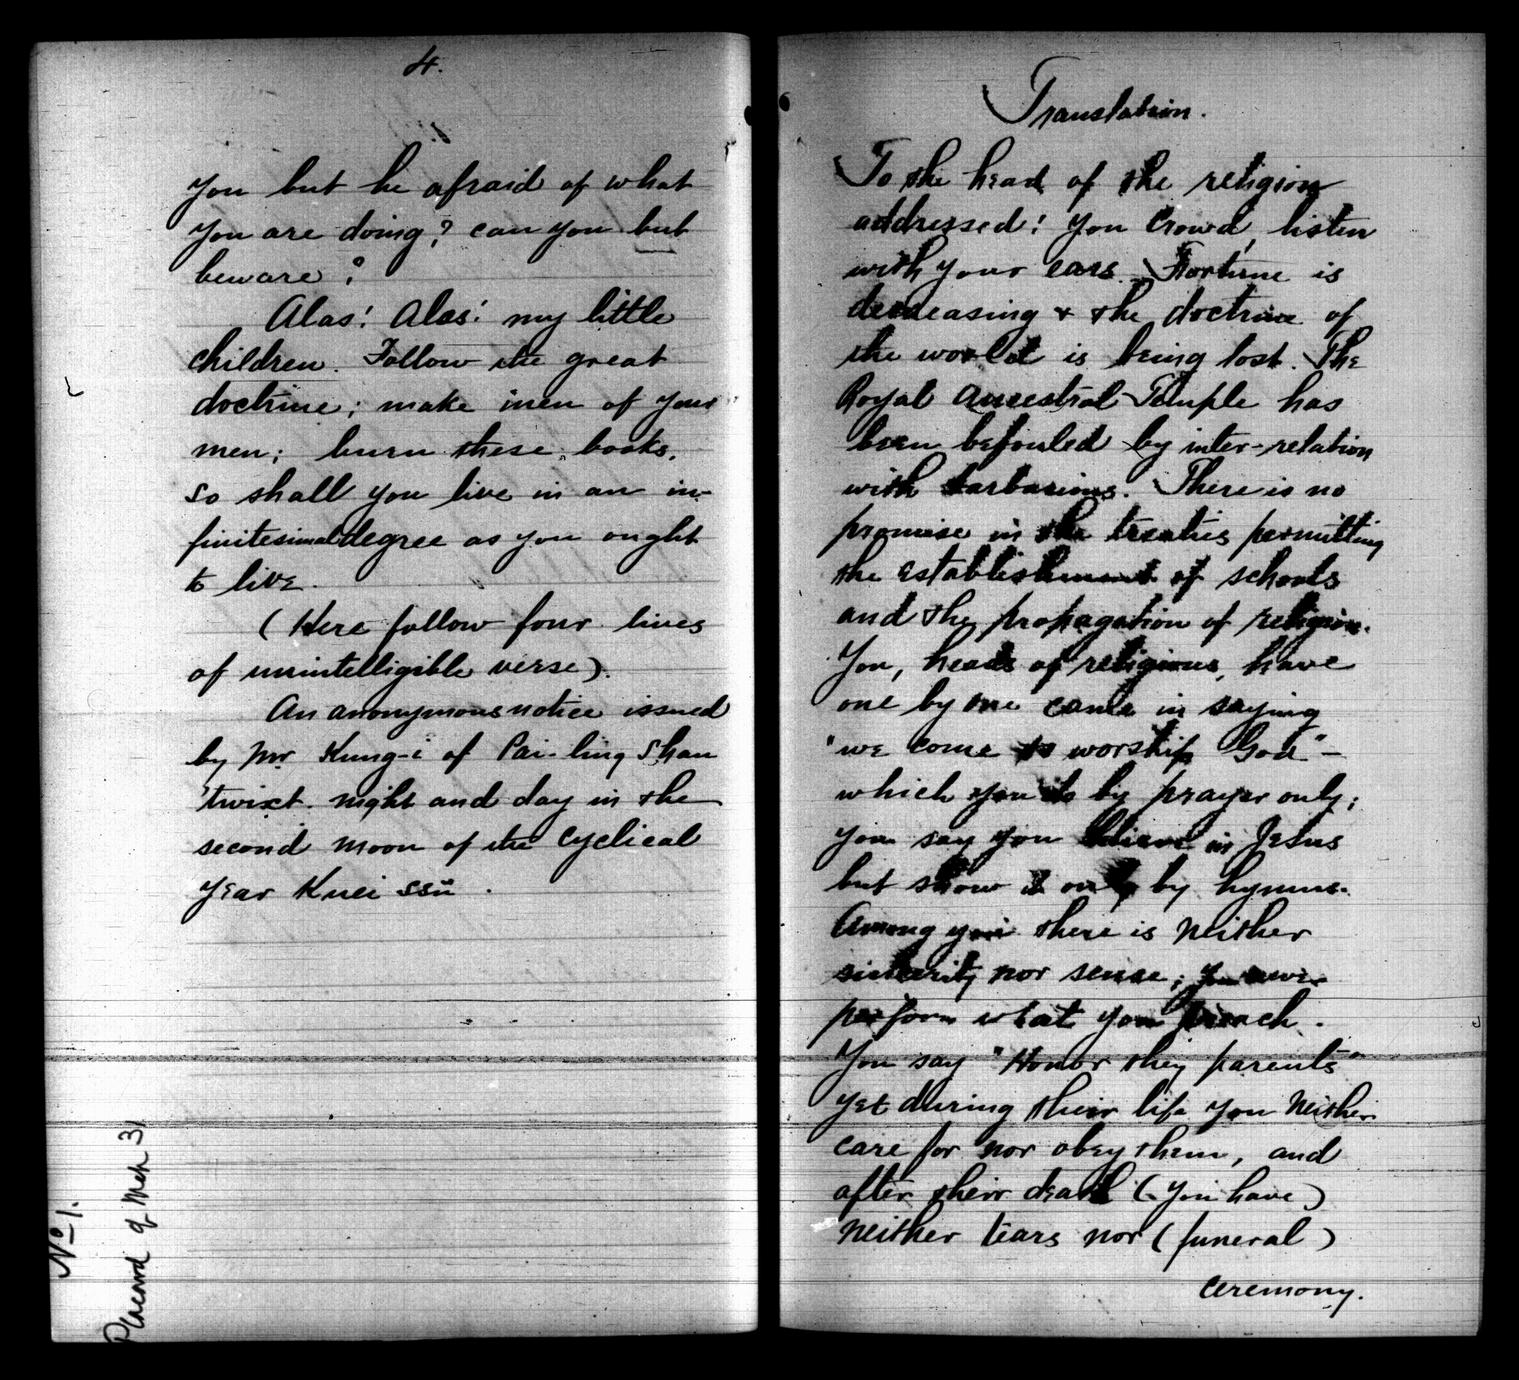 4.
you but be afraid of what
you are doing? can you but
beware?
Alas! Alas! my little
children. Follow the great
doctrine; make men of your
men; burn these books.
So shall you live in an in-
finitesimal degree as you ought
to live.
(Here follow four lines
of unintelligible verse).
An anonymous notice issued
by Mr Kung-i of Pai-ling Shan
'twixt night and day in the
second moon of the cyclical
year Kuei ssŭ.
No 1.
Placard of Mch 31
Translation.
To the head of the religion
addressed: You crowd, listen
with your ears. Fortune is
decreasing & the doctrine of
the world is being lost. The
Royal Ancestral Temple has
been befouled by inter-relation
with barbarians. There is no
promise in the treaties permitting
the establishment of schools
and the propagation of religion.
You, heads of religions, have
one by one came in saying
"we come to worship God" -
which you do by prayer only;
you say you believe in Jesus
but show it only by hymns.
Among you there is neither
sincerity nor sense; you never
perform what you preach.
You say "Honor they parents"
yet during their life you neither
care for nor obey them, and
after their death (you have)
neither tears nor (funeral)
ceremony.